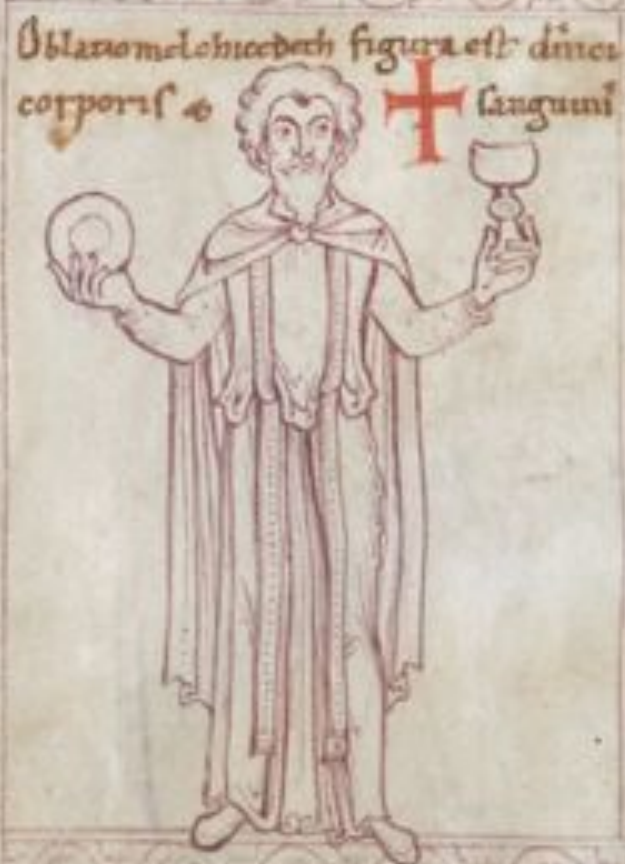 Oblatio melchicedech figura est dn̄ici
corporis & sanguinis